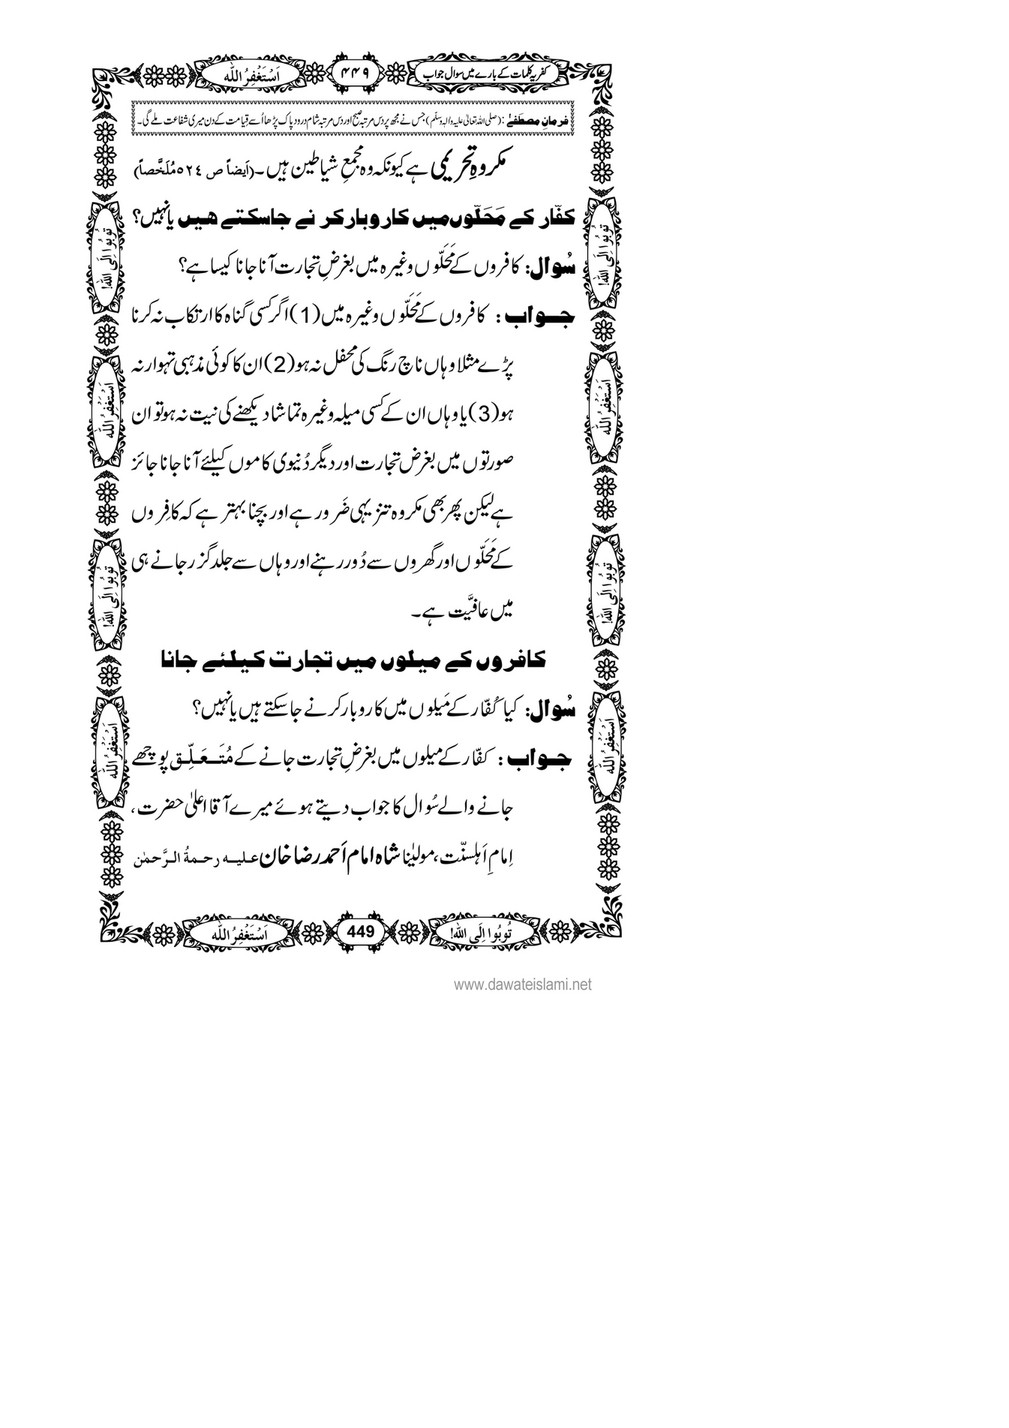 کفریہ کلمات کے بارے میں سوال جواب
۴۴۹
اَسْتَغْفِرُ اللّٰه
فرمانِ مصطفےٰ : (صلی اللہ تعالیٰ علیہ والہٖ وسلّم) جس نے مجھ پر دس مرتبہ صبح اور دس مرتبہ شام درود پاک پڑھا اُسے قیامت کے دن میری شفاعت ملے گی۔
مکروہِ تحریمی ہے کیونکہ وہ مجمعِ شیاطین ہیں۔ (اَیضاً ص ٥٢٤ مُلَخَّصاً)
کفّار کے مَحَلّوں میں کاروبار کرنے جاسکتے ہیں یا نہیں؟
سُوال: کافروں کے مَحَلّوں وغیرہ میں بغرضِ تجارت آنا جانا کیسا ہے؟
جواب : کافروں کے مَحَلّوں وغیرہ میں (1) اگر کسی گناہ کا ارتکاب نہ کرنا
پڑے مثلا وہاں ناچ رنگ کی محفل نہ ہو (2) ان کا کوئی مذہبی تہوار نہ
ہو (3) یا وہاں ان کے کسی میلہ وغیرہ تماشا دیکھنے کی نیت نہ ہو تو ان
صورتوں میں بغرض تجارت اور دیگر دُنیوی کاموں کیلئے آنا جانا جائز
ہے لیکن پھر بھی مکروہ تنزیہی ضَرور ہے اور بچنا بہتر ہے کہ کافِروں
کے مَحَلّوں اور گھروں سے دُور رہنے اور وہاں سے جلد گزر جانے ہی
میں عافیَّت ہے۔
کافروں کے میلوں میں تجارت کیلئے جانا
سُوال: کیا کُفّار کے مَیلوں میں کاروبار کرنے جا سکتے ہیں یا نہیں؟
جواب : کفّار کے میلوں میں بغرضِ تجارت جانے کے مُتَعَلِّق پوچھے
جانے والے سُوال کا جواب دیتے ہوئے میرے آقا اعلیٰ حضرت ،
اِمامِ اَہلسنّت، مولیٰنا شاہ امام اَحمد رضا خان علیہ رحمۃُ الرَّحمٰن
تُوبُوا اِلَی اللّٰه!
اَسْتَغْفِرُ اللّٰه
تُوبُوا اِلَی اللّٰه!
اَسْتَغْفِرُ اللّٰه
تُوبُوا اِلَی اللّٰه!
اَسْتَغْفِرُ اللّٰه
تُوبُوا اِلَی اللّٰه!
اَسْتَغْفِرُ اللّٰه
تُوبُوا اِلَی اللّٰه!
449
اَسْتَغْفِرُ اللّٰه
www.dawateislami.net